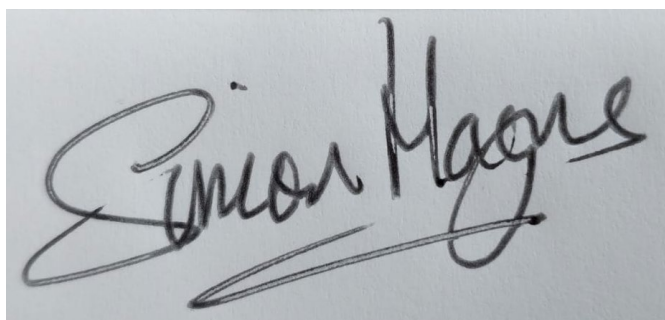 Simon Magus